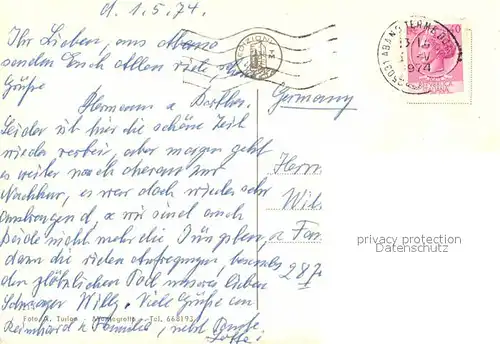 d. 1.5.74.
Ihr Lieben, aus Abano
senden Euch Allen viele, schöne
Grüße
Hermann u. Dorothea.
Leider ist hier die schöne Zeit
wieder vorbei, aber morgen geht
es weiter nach Meran zur
Nachkur, es war doch wieder sehr
anstrengend d, u wir sind auch
beide nicht mehr die Jüngsten,
dann die vielen Aufregungen, besonders
den plötzlichen Tod unseres lieben
Schwager Willy. Viele Grüße an
Reinhard u Familie, nebst Tante
Germany
Herrn
Wil
u Fam
287
35031 ABANO TERME
1974
privacy protection
Datenschutz
Foto A. Turlon - Montegrotto - Tel. 668193